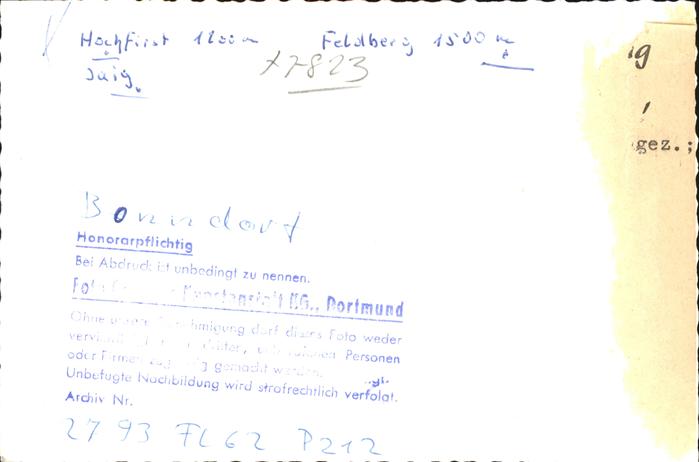 Hochfirst 1200 m Feldberg 1500 m
Saig
7823
gez.;
Bonndorf
Honorarpflichtig
Bei Abdruck ist unbedingt zu nennen.
Kunstanstalt KG., Dortmund
Ohne unsere Genehmigung darf dieses Foto weder
Personen
oder Firmen gemacht werden.
Unbefugte Nachbildung wird strafrechtlich verfolgt.
Archiv Nr.
2793 FL 62 P212